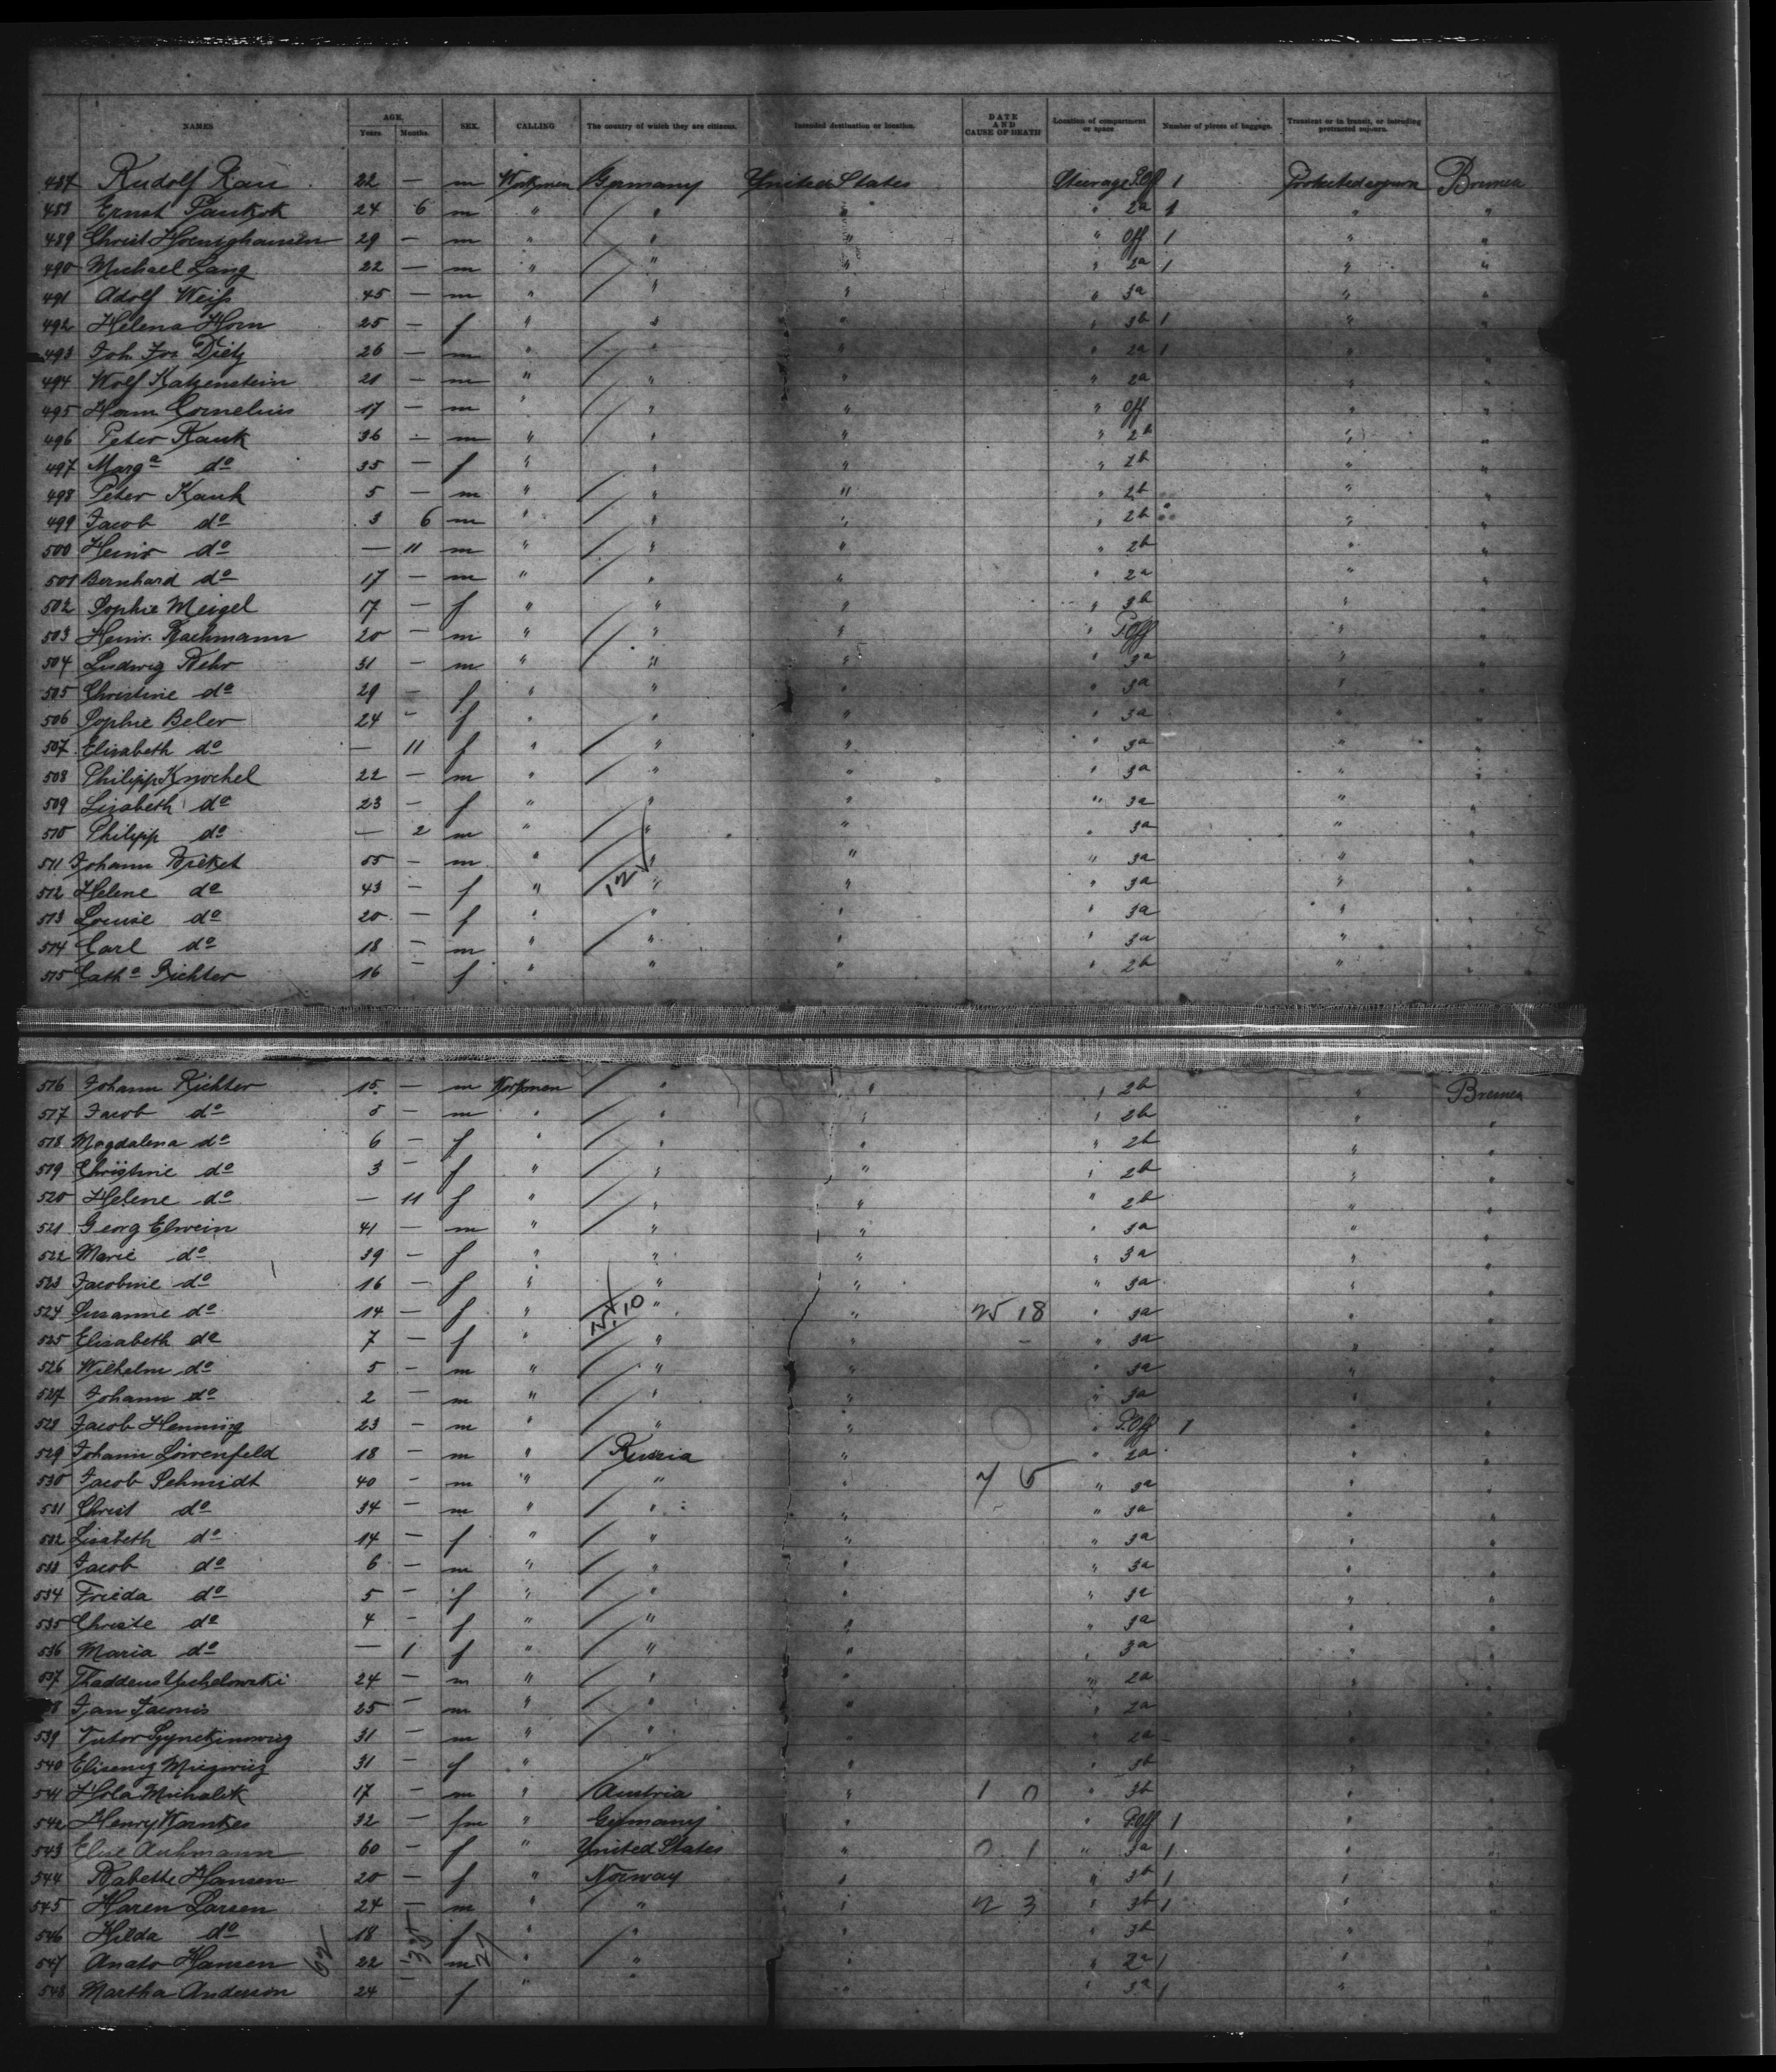 NAMES AGE, Years Months. SEX. CALLING The country of which they are citizens. Intended destination or location. DATE AND CAUSE OF DEATH Location of compartment or space Number of pieces of baggage. Transient or in transit, or intending protracted sojourn.
487 Rudolf Rau 22 — m Workmen Germany United States Steerage P.Off 1 Protracted sojourn Bremen
488 Ernst Paukok 24 6 m " " " " 2a 1 " "
489 Christ Hoenighausen 29 — m " " " " Off 1 " "
490 Michael Lang 22 — m " " " " 2a 1 " "
491 Adolf Weiß 45 — m " " " " 3a " "
492 Helena Horn 25 — f " " " " 3b 1 " "
493 Joh. Jos Dietz 26 — m " " " " 2a 1 " "
494 Wolf Katzenstein 21 — m " " " " 2a " "
495 Herm Cornelius 17 — m " " " " Off " "
496 Peter Kauk 36 — m " " " " 2b " "
497 Marga do 35 — f " " " " 2b " "
498 Peter Kauk 5 — m " " " " 2b " "
499 Jacob do 3 6 m " " " " 2b " "
500 Heinr do — 11 m " " " " 2b " "
501 Bernhard do 17 — m " " " " 2a " "
502 Sophie Meigel 17 — f " " " " 3b " "
503 Heinr. Bachmann 20 — m " " " " P.Off " "
504 Ludwig Behr 31 — m " " " " 3a " "
505 Christine do 29 — f " " " " 3a " "
506 Sophie Beler 24 — f " " " " 3a " "
507 Elisabeth do — 11 f " " " " 3a " "
508 Philipp Knochel 22 — m " " " " 3a " "
509 Lisabeth do 23 — f " " " " 3a " "
510 Philipp do — 2 m " " " " 3a " "
511 Johann Bicket 55 — m " " " " 3a " "
512 Helene do 43 — f " 12 " " " 3a " "
513 Louise do 20 — f " " " " 3a " "
514 Carl do 18 — m " " " " 3a " "
515 Catha Richter 16 — f " " " " 2b " "
516 Johann Richter 15 — m Workmen " " " 2b " Bremen
517 Jacob do 8 — m " " " " 2b " "
518 Magdalena do 6 — f " " " " 2b " "
519 Christine do 3 — f " " " " 2b " "
520 Helene do — 11 f " " " " 2b " "
521 Georg Elwein 41 — m " " " " 3a " "
522 Marie do 39 — f " " " " 3a " "
523 Jacobine do 16 — f " " " " 3a " "
524 Susanne do 14 — f " " " 25 18 " 3a " "
525 Elisabeth do 7 — f " " " " 3a " "
526 Wilhelm do 5 — m " " " " 3a " "
527 Johann do 2 — m " " " " 3a " "
528 Jacob Henning 23 — m " " " " P.Off 1 " "
529 Johann Löwenfeld 18 — m " Russia " " 2a " "
530 Jacob Schmidt 40 — m " " " 7 5 " 3a " "
531 Christ do 34 — m " " " " 3a " "
532 Lisabeth do 14 — f " " " " 3a " "
533 Jacob do 6 — m " " " " 3a " "
534 Frieda do 5 — f " " " " 3a " "
535 Christe do 4 — f " " " " 3a " "
536 Maria do — 1 f " " " " 3a " "
537 Thaddeus 24 — m " " " " 2a " "
8 Jan Jaconis 25 — m " " " " 2a " "
539 Victor 31 — m " " " " 2a " "
540 31 — f " " " " 3b " "
541 Hola Michalik 17 — m " Austria " 1 0 " 3b " "
542 Henry Warnkes 32 — m " Germany " " P.Off 1 " "
543 Elise Auhmann 60 — f " United States " 0 1 " 3a 1 " "
544 Babette Hansen 20 — f " Norway " " 3b 1 " "
545 Haren Larsen 24 — m " " " 2 3 " 3b 1 " "
546 Hilda do 18 f " " " " 3b " "
547 Anato Hansen 22 — m " " " " 2a 1 " "
548 Martha Anderson 24 f " " " " 3a 1 " "
62 27